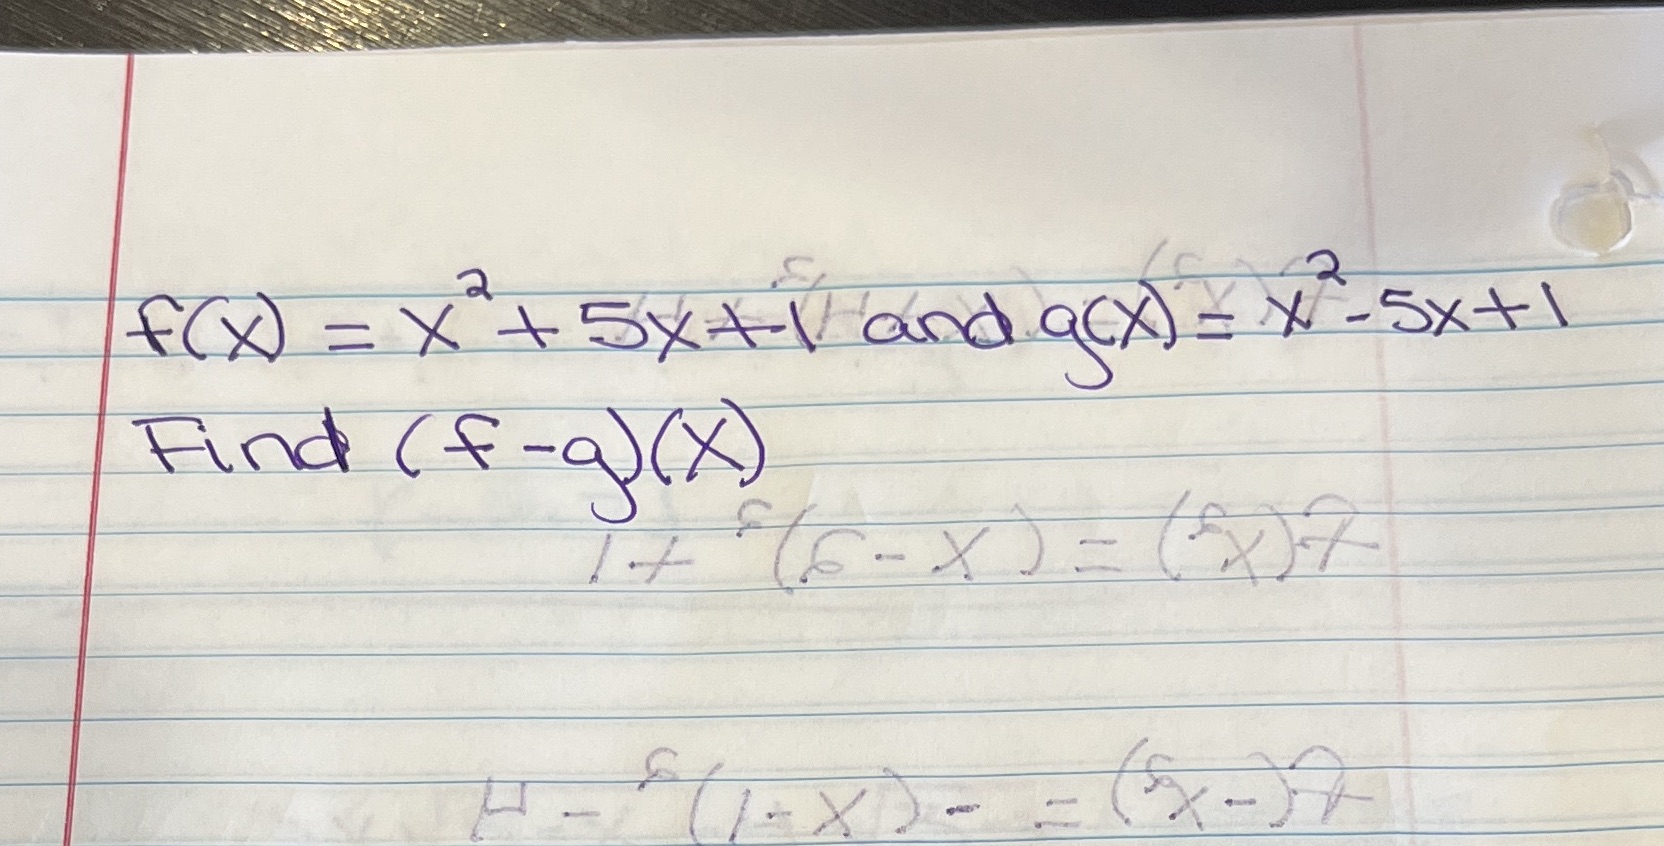 f(x) = x² + 5x + 1 and g(x) = x² - 5x + 1
Find (f - g)(x)